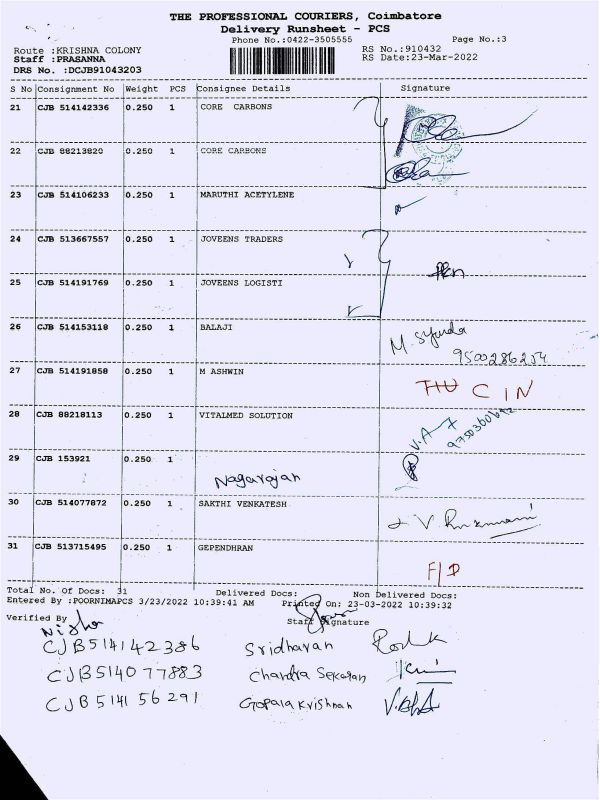 THE PROFESSIONAL COURIERS, Coimbatore
Delivery Runsheet - PCS
Phone No.:0422-3505555 Page No.:3
Route :KRISHNA COLONY RS No.:910432
Staff :PRASANNA RS Date:23-Mar-2022
DRS No. :DCJB91043203
S No Consignment No Weight PCS Consignee Details Signature
21 CJB 514142336 0.250 1 CORE CARBONS
22 CJB 88213820 0.250 1 CORE CARBONS
23 CJB 514106233 0.250 1 MARUTHI ACETYLENE
24 CJB 513667557 0.250 1 JOVEENS TRADERS
25 CJB 514191769 0.250 1 JOVEENS LOGISTI
26 CJB 514153118 0.250 1 BALAJI
9500286254
27 CJB 514191858 0.250 1 M ASHWIN
CIN
28 CJB 88218113 0.250 1 VITALMED SOLUTION
29 CJB 153921 0.250 1 Nagarajan
30 CJB 514077872 0.250 1 SAKTHI VENKATESH
31 CJB 513715495 0.250 1 GEPENDHRAN
F/D
Total No. Of Docs: 31 Delivered Docs: Non Delivered Docs:
Entered By :POORNIMAPCS 3/23/2022 10:39:41 AM Printed On: 23-03-2022 10:39:32
Verified By Staff Signature
Nisha
CJB514142386 Sridharan
CJB514077883 Chandra Sekaran
CJB514156291 Gopala Krishnan